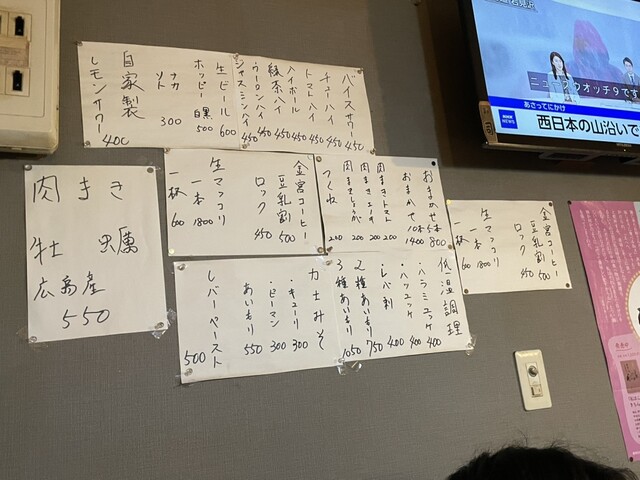 バイスサワー 450
チューハイ 450
トマトハイ 450
ハイボール 450
緑茶ハイ 450
ウーロンハイ 450
ジャスミンハイ 450
生ビール 600
ホッピー 白黒 500
ナカ 300
ソト
自家製
レモンサワー 400
肉まき
牡蠣
広島産
550
金宮コーヒー 500
豆乳割
ロック 450
生マッコリ
一本 1800
一杯 600
おまかせ5本 800
おまかせ10本 1400
肉まきトマト 200
肉まき 200
肉まき 200
つくね 200
金宮コーヒー 500
豆乳割
ロック 450
生マッコリ
一本 1800
一杯 600
低温調理
・ハラミユッケ 400
・ハツユッケ 400
・レバ刺 400
2種あいもり 750
3種あいもり 1050
カ士みそ
・キューリ 300
・ピーマン 300
あいもり 550
レバーペースト 500
ニュースウオッチ9です
あさってにかけ
NHK NEWS
西日本の山沿いで